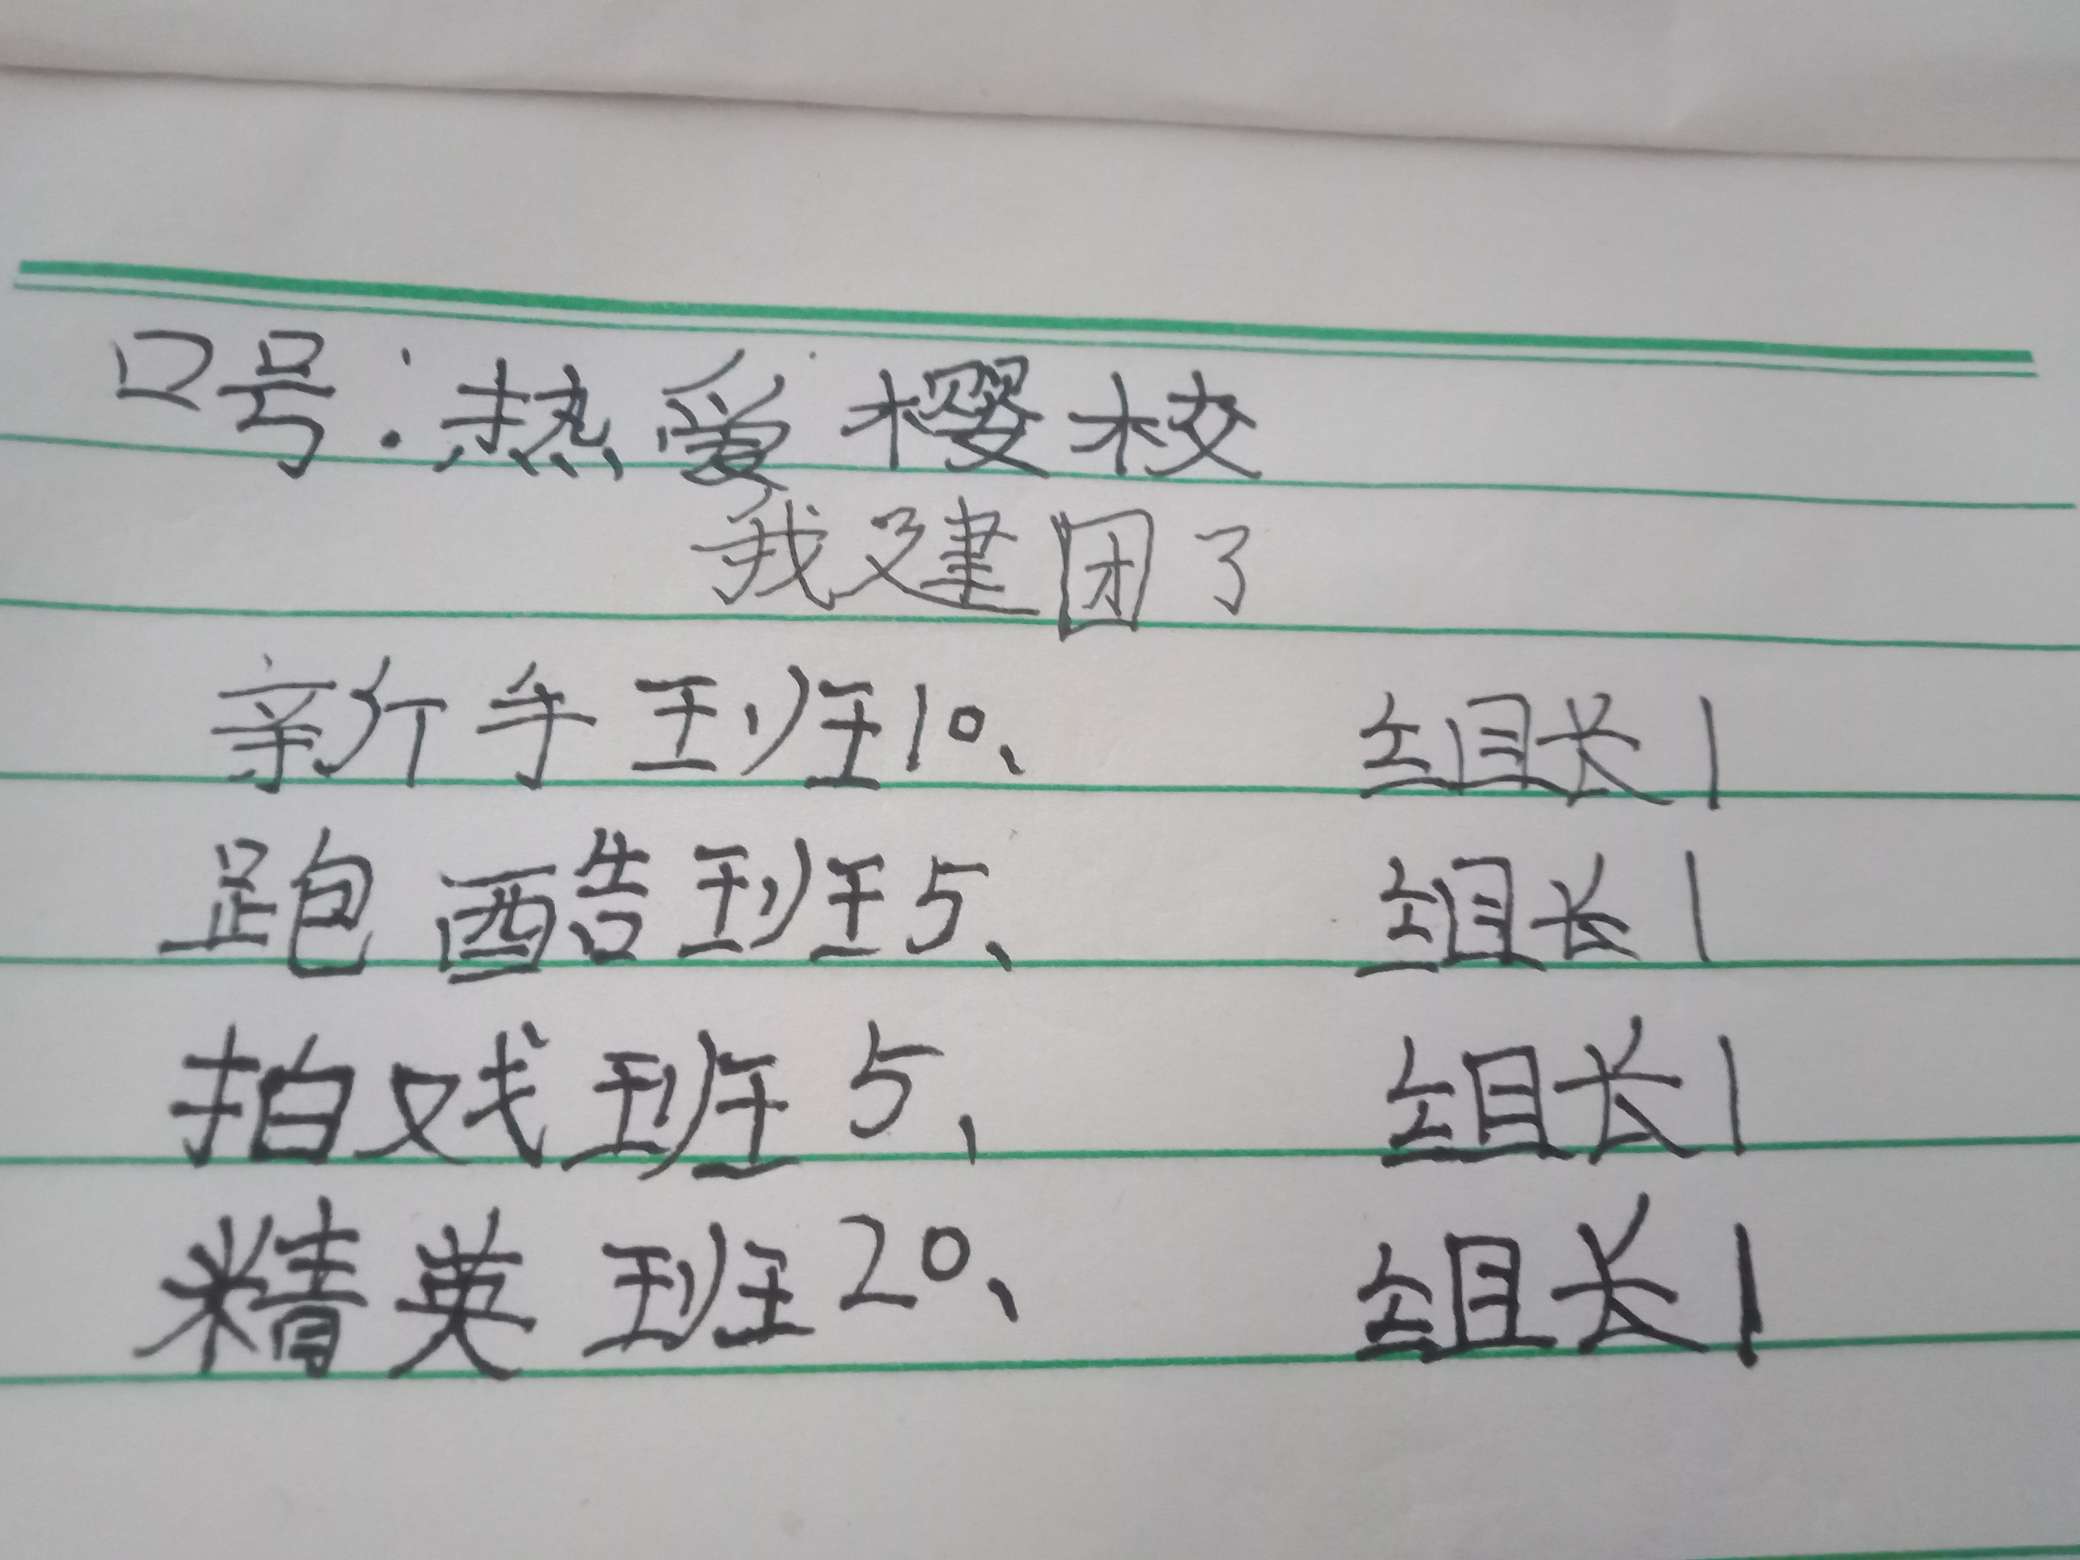 口号:热爱樱校
我建团了
新手班10、 组长1
跑酷班5、 组长1
拍戏班5、 组长1
精英班20、 组长1